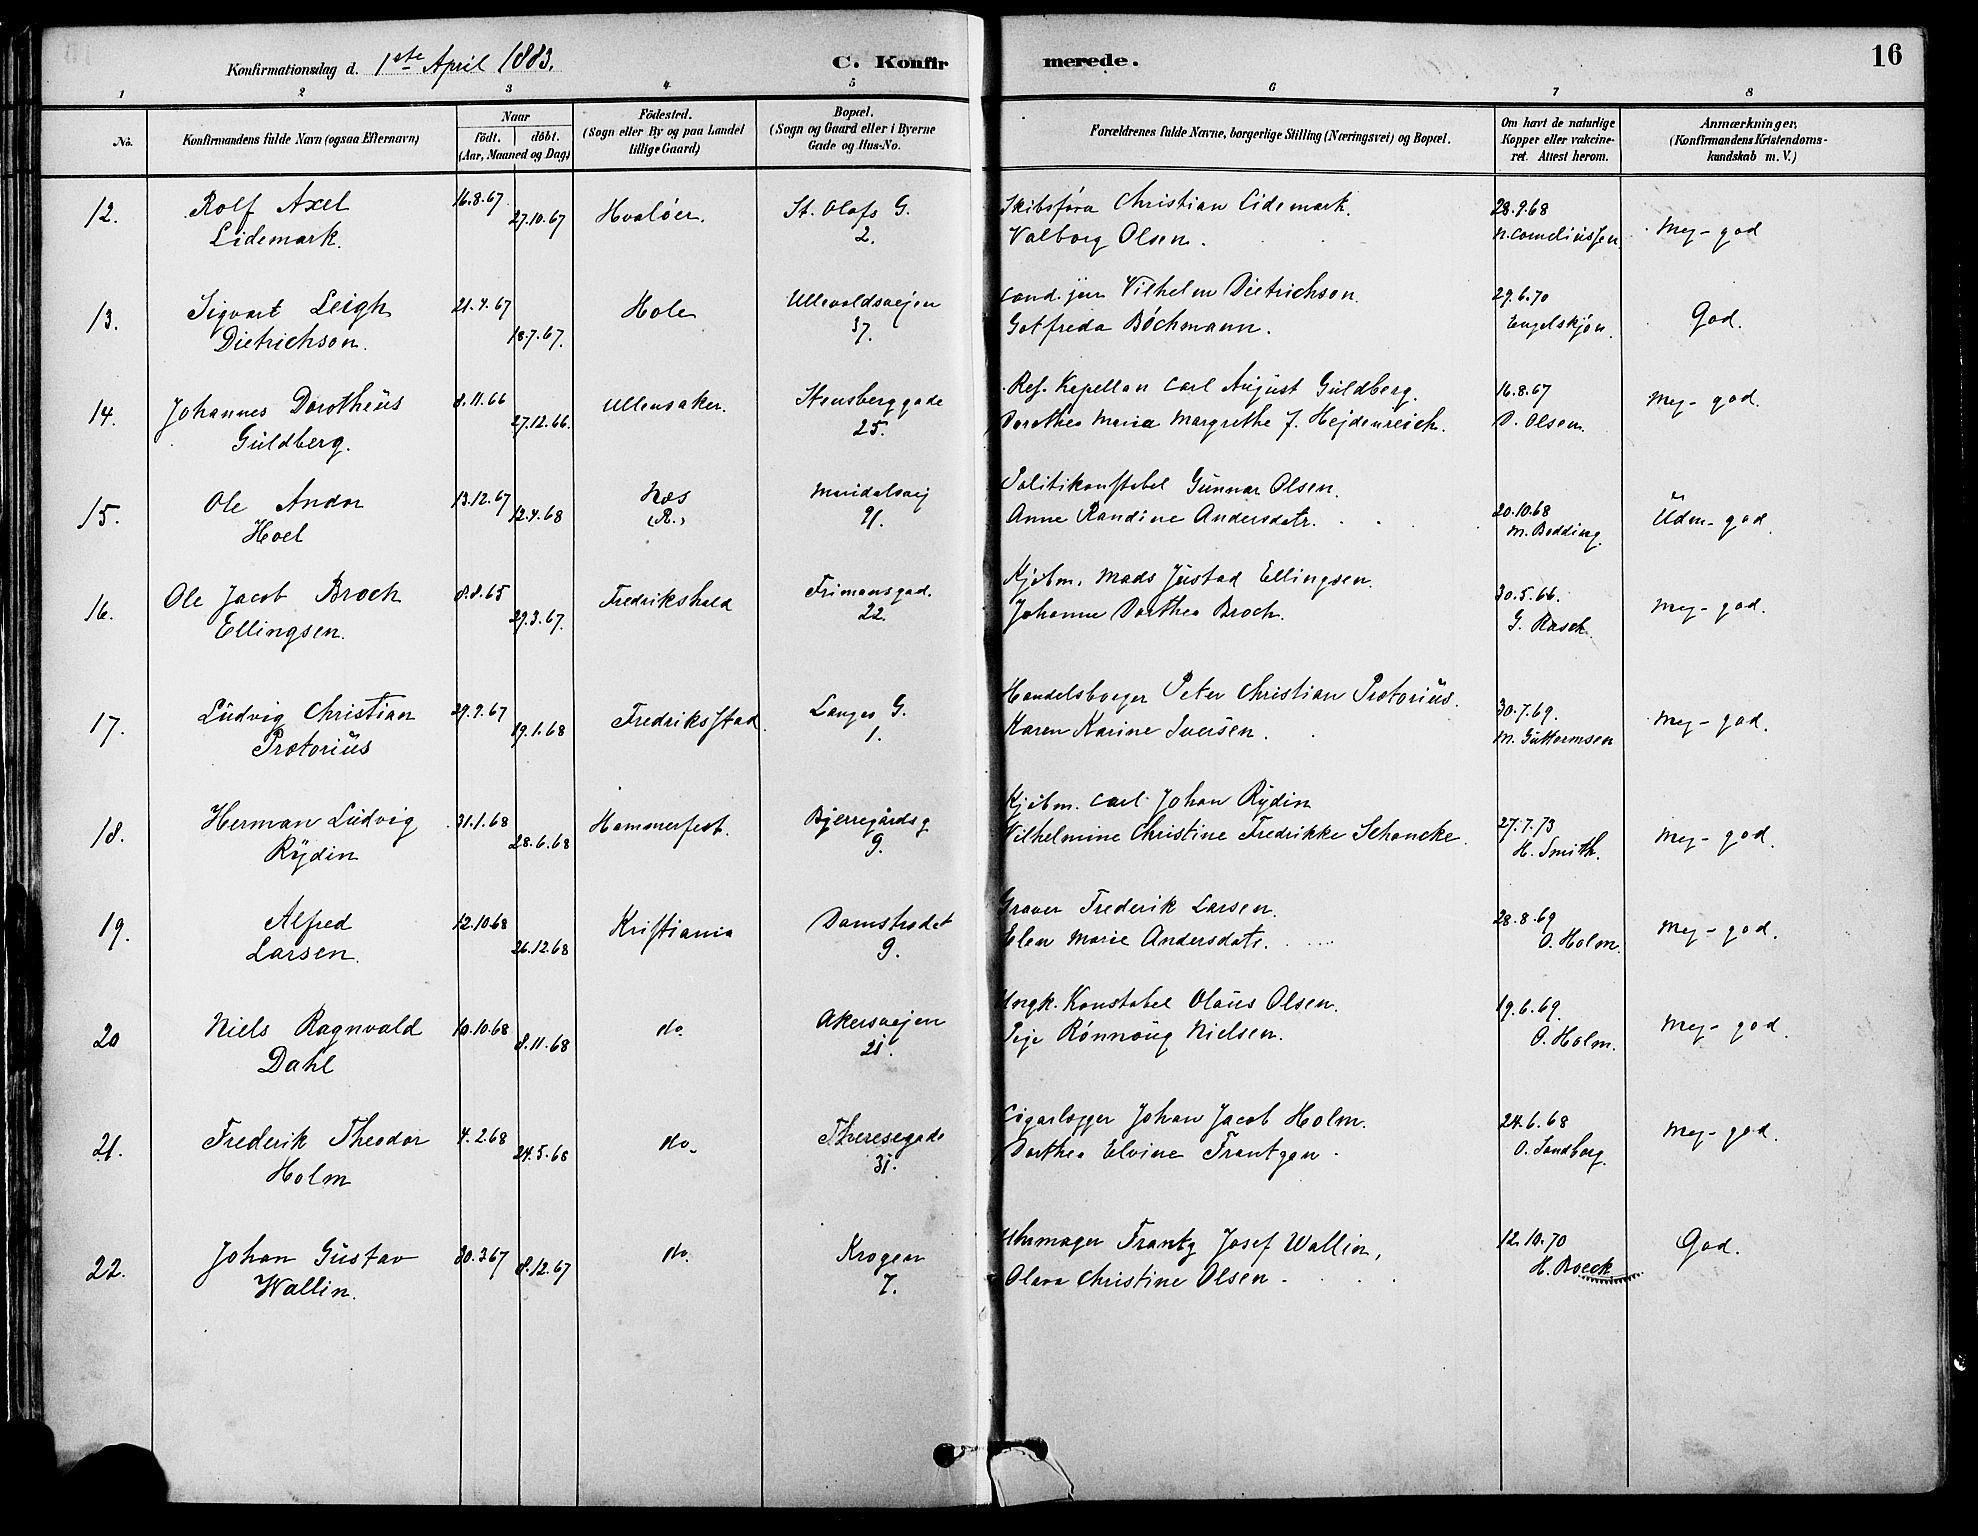 Konfirmationsdag d. 1ste April 1883.
C. Konfirmerede.
16
1 2 3 4 5 6 7 8
No.
Konfirmandens fulde Navn (ogsaa Efternavn)
Naar
födt. döbt.
(Aar, Maaned og Dag)
Födested.
(Sogn eller By og paa Landet
tillige Gaard)
Bopæl.
(Sogn og Gaard eller i Byerne
Gade og Hus-No.
Forældrenes fulde Navne, borgerlige Stilling (Næringsvei) og Bopæl.
Om havt de naturlige
Kopper eller vakcine-
ret. Attest herom.
Anmærkninger,
(Konfirmandens Kristendoms-
kundskab m. V.)
12. Rolf Axel 16.8.67 27.10.67 Hvalöer. St. Olafs G. Skibsföra Christian Lidemark. 28.9.68 Meg- god
Lidemark. 2. Valborg Olsen. N. Corneliussen
13. Sigvart Leigh 21.4.67 18.7.67. Hole Ullevoldsvejen Cand. jur Vilhelm Dietrichson 29.6.70 God.
Dietrichson. 37. Gotfreda Böchmann. Engelskjøn.
14. Johannes Dorotheus 8.11.66 27.12.66. Ullensaker. Stensberggade Res. Kapellan Carl August Guldberg. 16.8.67 Meg- god.
Guldberg. 25. Dorothea Maria Margrethe f. Hejdenreich. D. Olsen.
15. Ole Andor 13.12.67 12.4.68 Næs Maridalsvej Politikonstabel Gunnar Olsen. 20.10.68 Udm- god
Hoel (R.) 91. Anne Randine Andersdatr. M. Bodding.
16. Ole Jacob Broch 8.8.65 29.3.67. Fredrikshald Frimansgad. Kjöbm. Mads Justad Ellingsen. 30.5.66. Meg- god.
Ellingsen. 22. Johanne Dorthea Broch. G. Rasch
17. Ludvig Christian 29.9.67 19.1.68 Fredriksstad Langes G. Handelsborger Peter Christian Protorius. 30.7.69. Meg- god.
Protorius 1. Karen Karine Iversen. M. Guttormsen
18. Herman Ludvig 31.1.68 28.6.68 Hammerfest. Bjerregårdsg Kjöbm. Carl Johan Rydin 27.7.73 Meg- god.
Rydin 9. Vilhelmine Christine Fredrikke Schancke. H. Smith.
19. Alfred 12.10.68 26.12.68 Kristiania Damstredet Graver Frederik Larsen. 28.8.69 Meg- god.
Larsen. 9. Elen Marie Andersdatr. O. Holm.
20 Niels Ragnvald 10.10.68 8.11.68 do. Akersvejen Ungk. Konstabel Olaus Olsen. 19.6.69. Meg- god.
Dahl 21. Pige Rönnoug Nielsen. O. Holm.
21. Frederik Theodor 4.2.68 24.5.68 do. Theresegade Cigarlagger Johan Jacob Holm. 24.6.68 Meg- god.
Holm 31. Dorthea Elvine Frantzen. O. Sandborg.
22. Johan Gustav 30.3.67 8.12.67 do. Krogen Uhrmager Frantz Josef Wallin, 12.10.70 God.
Wallin. 7. Olava Christine Olsen. H. Boeck